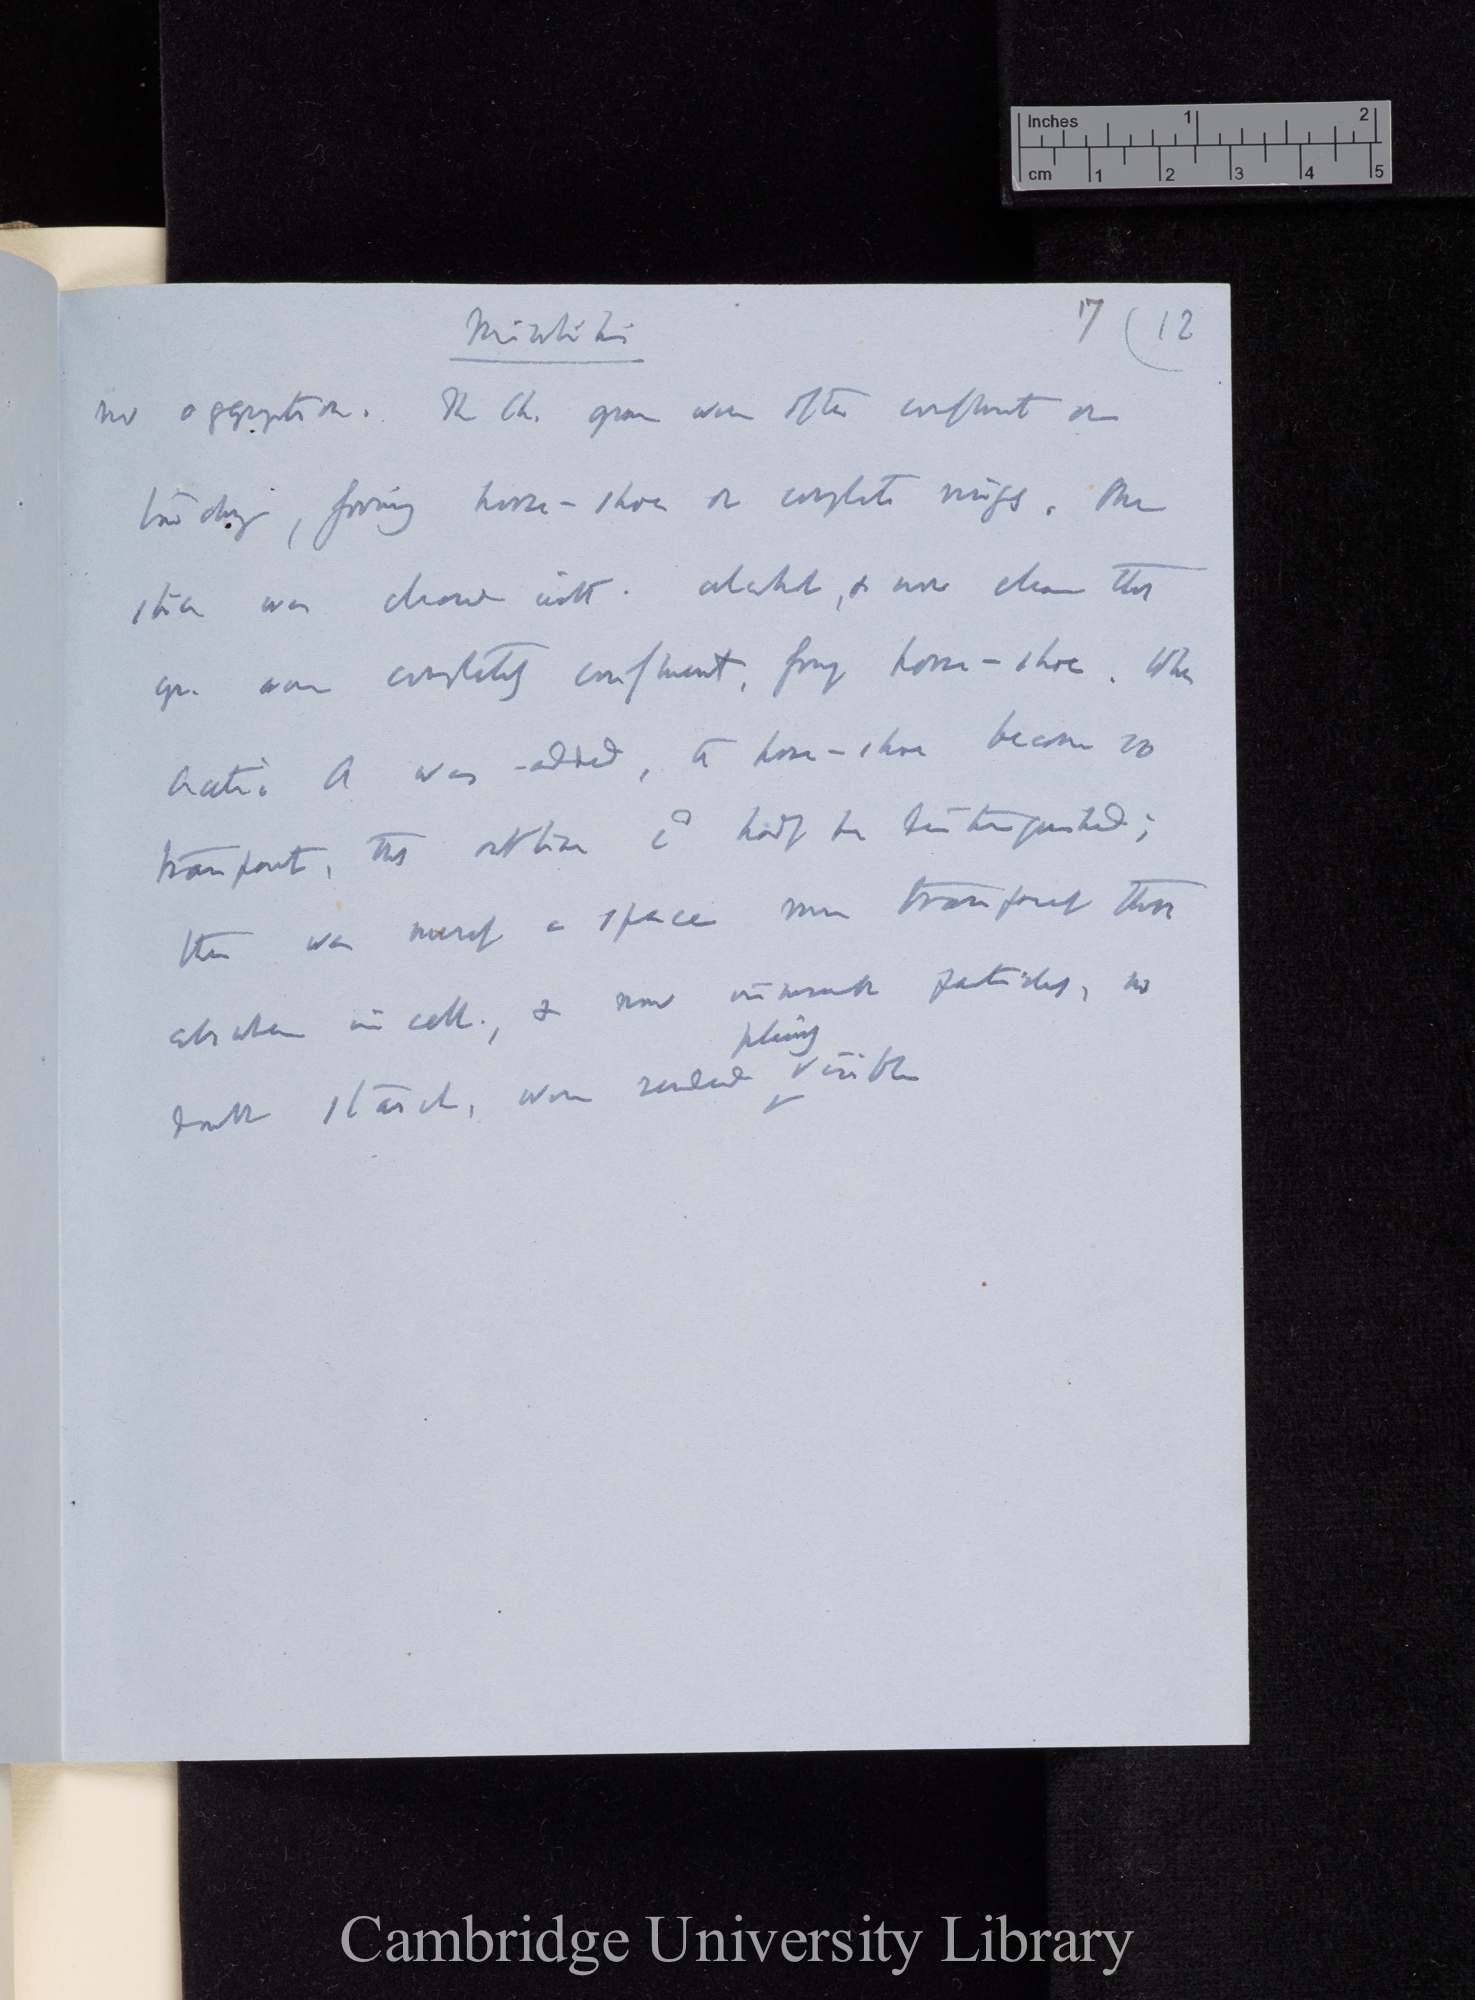 Inches 1 2
cm 1 2 3 4 5
17 (12
no aggregation. The Ch. grains were often confluent or
touching, forming horse-shoes or complete rings. One
slice was cleared with alcohol, & now clear that
gr. were completely confluent, forming horse-shoe. When
acetic A was added, the horse-shoe became so
transparent, that outline cd hardly be distinguished;
there was merely a space more transparent than
elsewhere in cell., & now innumerable particles, no
doubt starch, were rendered plainly visible
Cambridge University Library